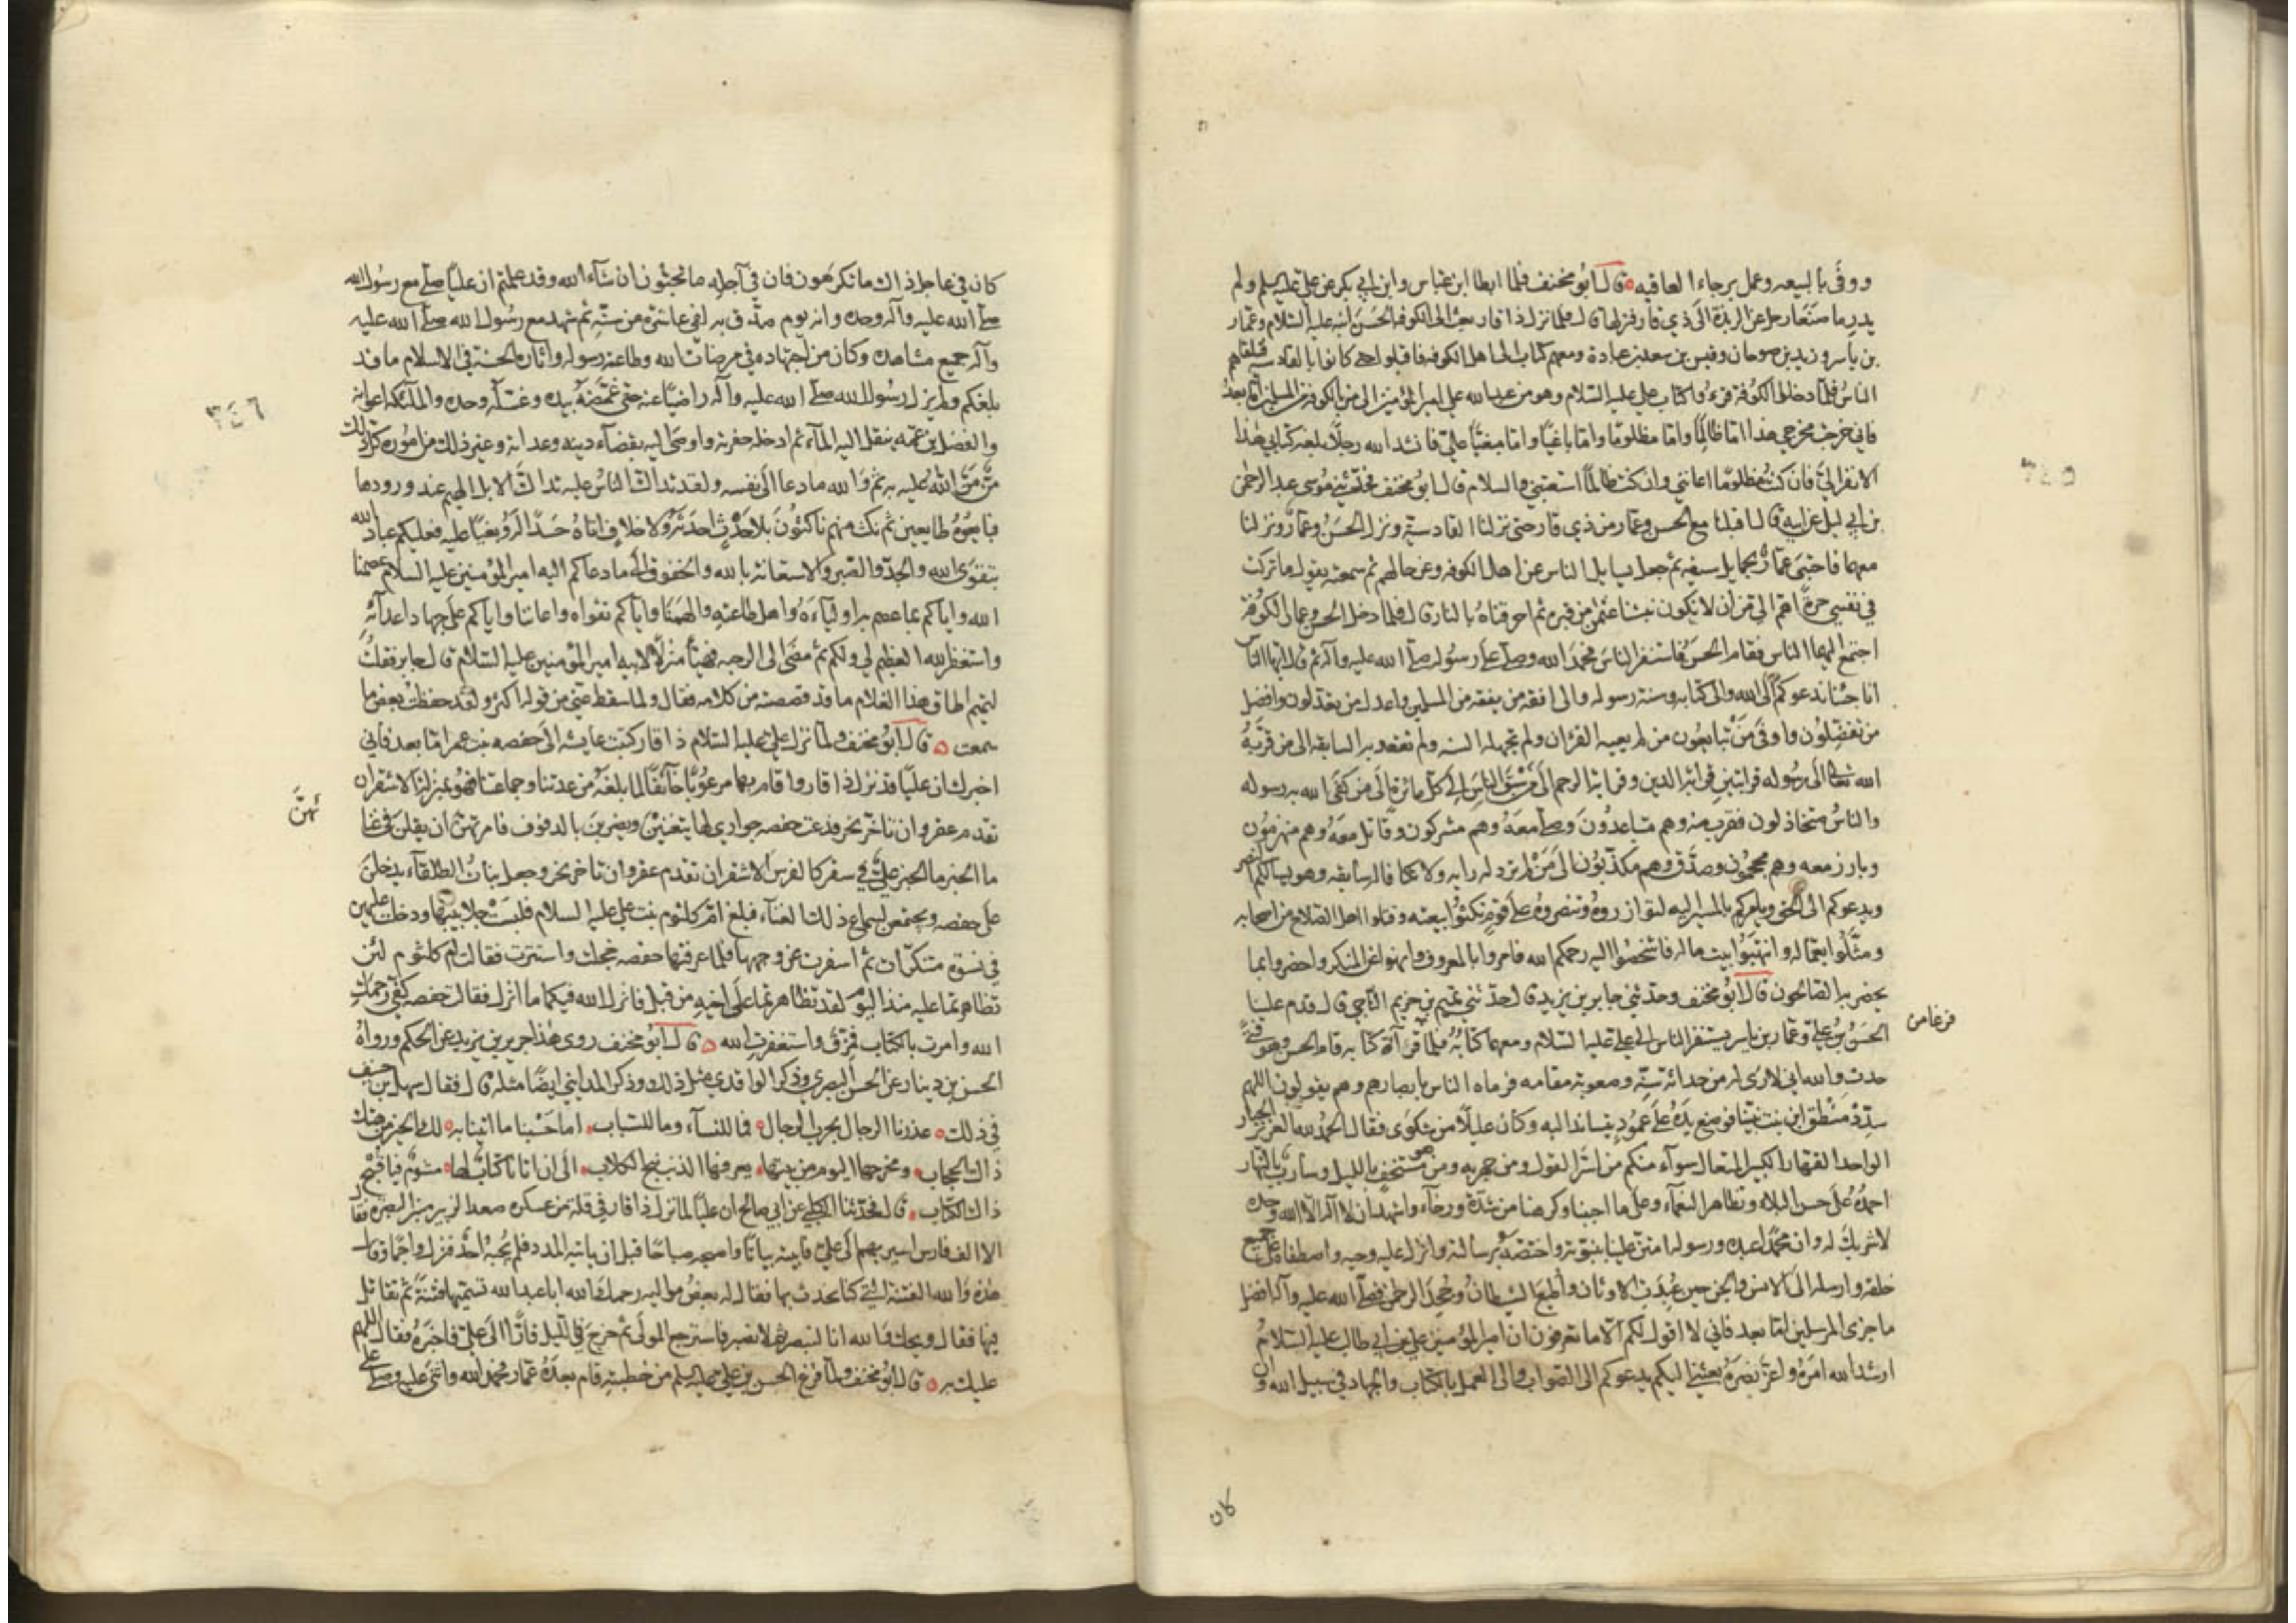 ووفى بالبيعه وعمل برجاء العاقبه ٥ قال ابو مخنف فلما ابطا ابن عباس وابن ابي بكر عن علي عليه السلم ولم
يدر ما صنعا رحل عن الربذة الى ذي قار فنزلها قال فلما نزل ذا قار بعث الى الكوفه الحسن ابنه عليه السلام وعمار
بن ياسر وزيد بن صوحان وقيس بن سعد بن عبادة ومعهم كتاب الى اهل الكوفه فاقبلوا حتى كانوا بالقادسيه فتلقاهم
الناس فلما دخلوا الكوفة قرءوا كتاب علي عليه السلام وهو من عبد الله علي امير المؤمنين الى من بالكوفه من المسلمين اما بعد
فاني خرجت مخرجي هذا اما ظالما واما مظلوما واما باغيا واما مبغيا علي فانشد الله رجلا بلغه كتابي هذا
الا نفر الي فان كنت مظلوما اعانني وان كنت ظالما استعتبني والسلام قال ابو مخنف فحدثني موسى عبد الرحمن
بن ابي ليلى عن ابيه قال اقبلنا مع الحسن وعمار من ذي قار حتى نزلنا القادسية ونزل الحسن وعمار ونزلنا
معهما فاحتبى عمار بحمايل سيفه ثم جعل يسايل الناس عن اهل الكوفه وعن حالهم ثم سمعته يقول ما تركت
في نفسي حزة اهم الي من ان لا نكون نبشنا عثمن من قبره ثم احرقناه بالنار قال فلما دخل الحسن وعمار الكوفة
اجتمع اليهما الناس فقام الحسن فاستنفر الناس فحمد الله وصلى على رسوله صلى الله عليه وآله ثم قال ايها الناس
انا جئنا ندعوكم الى الله والى كتابه وسنة رسوله والى افقه من يفقه من المسلمين واعدل من تعدلون وافضل
من تفضلون واوفى من تبايعون من لم يعيه القرآن ولم تجهله السنه ولم تقعد به السابقه الى من قربه
الله تعالى الى رسوله قرابتين قرابة الدين وقرابة الرحم الى من سبق الناس الى كل ماثرة الى من كفى الله به رسوله
والناس متخاذلون فقرب منه وهم متباعدون وصلى معه وهم مشركون وقاتل معه وهم منهزمون
وبارز معه وهم محجمون وصدق وهم مكذبون الى من لم ترد له رايه ولا تكافا له سابقه وهو يسالكم النصر
ويدعوكم الى الحق ويامركم بالمسير اليه لتوازروه وتنصروه على قوم نكثوا بيعته وقتلوا اهل الصلاح من اصحابه
ومثلوا بعماله وانتهبوا بيت ماله فاشخصوا اليه رحمكم الله فامروا بالمعروف وانهوا عن المنكر واحضروا بما
يحضر به الصالحون قال ابو مخنف وحدثني جابر بن يزيد قال حدثني تميم بن حزيم الناجي قال قدم علينا
الحسن بن علي وعمار بن ياسر يستنفران الناس الى علي عليه السلام ومعهما كتابه فلما قرآة كتابه قام الحسن وهو فتى
فرغا من
حدث والله اني لارثي له من حداثة سنه وصعوبة مقامه فرماه الناس بابصارهم وهم يقولون اللهم
سدد منطق ابن بنت نبينا فوضع يده على عمود يتساند اليه وكان عليلا من شكوى فقال الحمد لله العزيز الجبار
الواحد القهار الكبير المتعال سوآء منكم من اسر القول ومن جهر به ومن هو مستخف بالليل وسارب بالنهار
احمده على حسن البلاء وتظاهر النعمآء وعلى ما احببنا وكرهنا من شدة ورخآء واشهد ان لا اله الا الله وحده
لا شريك له وان محمدا عبده ورسوله امتن علينا بنبوته واختصه برسالته وانزل عليه وحيه واصطفاه على جميع
خلقه وارسله الى الانس والجن حين عبدت الاوثان واطيع الشيطان وجحد الرحمن فصلى الله عليه وآله افضل
ما جزى المرسلين اما بعد فاني لا اقول لكم الا ما تعرفون ان امير المؤمنين علي بن ابي طالب عليه السلام
ارشد الله امره واعز نصره بعثني اليكم يدعوكم الى الصواب والى العمل بالكتاب والجهاد في سبيل الله وان
كان
كان في عاجل ذاك ما تكرهون فان في آجله ما تحبون ان شآء الله وقد علمتم ان عليا صلى مع رسول الله
صلى الله عليه وآله وحده وانه يوم صدق به لفي عاشرة من سنه ثم شهد مع رسول الله صلى الله عليه
وآله جميع مشاهده وكان من اجتهاده في مرضات الله وطاعة رسوله واثاره الحسنة في الاسلام ما قد
بلغكم ولم يزل رسول الله صلى الله عليه وآله راضيا عنه حتى غمضه بيده وغسله وحده والملئكه اعوانه
٣٤٦
والفضل ابن عمه ينقل اليه المآء ثم ادخله حفرته واوصى اليه بقضآء دينه وعداته وغير ذلك من اموره كل ذلك
من من الله عليه به ثم والله ما دعا الى نفسه ولقد تداك الناس عليه تداك الابل الهيم عند ورودها
فبايعوه طايعين ثم نكث منهم ناكثون بلا حدث احدثه ولا خلاف اتاه حسدا له وبغيا عليه فعليكم عباد الله
بتقوى الله والجد والصبر والاستعانة بالله والخفوف الى ما دعاكم اليه امير المؤمنين عليه السلام عصمنا
الله واياكم بما عصم به اوليآءه واهل طاعته والهمنا واياكم تقواه واعاننا واياكم على جهاد اعدآئه
واستغفر الله العظيم لي ولكم ثم مضى الى الرحبه فهيأ منزلا لابيه امير المؤمنين عليه السلام قال جابر فقلت
لتميم اطاق هذا الغلام ما قد قصصته من كلامه فقال ولما سقط عني من قوله اكثر ولقد حفظت بعض ما
سمعت ٥ قال ابو مخنف ولما نزل علي عليه السلام ذا قار كتبت عايشه الى حفصه بنت عمر اما بعد فاني
اخبرك ان عليا قد نزل ذا قار واقام بها مرعوبا خآئفا لما بلغه من عدتنا وجماعتنا فهو بمنزلة الاشقر ان
تقدم عقر وان تاخر نحر فدعت حفصه جواري لها يتغنين ويضربن بالدفوف فامرتهن ان يقلن في غنا
ئهن
ما الخبر ما الخبر علي في سفر كالفرس الاشقر ان تقدم عقر وان تاخر نحر وجعل بنات الطلقآء يدخلن
على حفصه ويجتمعن لسماع ذلك الغنآء فبلغ ام كلثوم بنت علي عليه السلام فلبست جلابيبها ودخلت عليهن
في نسوة متنكرات ثم اسفرت عن وجهها فلما عرفتها حفصه خجلت واسترجعت فقالت ام كلثوم لئن
تظاهرتما عليه منذ اليوم لقد تظاهرتما على اخيه من قبل فانزل الله فيكما ما انزل فقالت حفصه كفي رحمك
الله وامرت بالكتاب فمزق واستغفرت الله ٥ قال ابو مخنف روى هذا جرير بن يزيد عن الحكم ورواه
الحسن بن دينار عن الحسن البصري وذكر الواقدي مثل ذلك وذكر المدايني ايضا مثله قال فقال سهل بن حنيف
في ذلك ٥ عذرنا الرجال بحرب الرجال ٥ فما للنسآء وما للسباب ٥ اما حسبنا ما اتينا به ٥ لك الخير من هتك
ذاك الحجاب ٥ ومخرجها اليوم من بيتها ٥ يعرفها الذنب نبح الكلاب ٥ الى ان اتانا كتاب لها ٥ مشوم فيا قبح
ذاك الكتاب ٥ قال فحدثنا الكلبي عن ابي صالح ان عليا لما نزل ذا قار في قلة من عسكره صعد الزبير منبر البصره فقال
الا الف فارس اسير بهم الى علي فابيته بياتا واصبحه صباحا قبل ان ياتيه المدد فلم يجبه احد فنزل واجما وقال
هذه والله الفتنة التي كنا نحدث بها فقال له بعض مواليه رحمك الله ابا عبد الله تسميها فتنة ثم تقاتل
فيها فقال ويحك والله انا لنبصر ثم لا نصبر فاسترجع المولى ثم خرج في الليل فارا الى علي فاخبره فقال اللهم
عليك به ٥ قال ابو مخنف ولما فرغ الحسن بن علي عليه السلم من خطبته قام بعده عمار فحمد الله واثنى عليه وصلى على